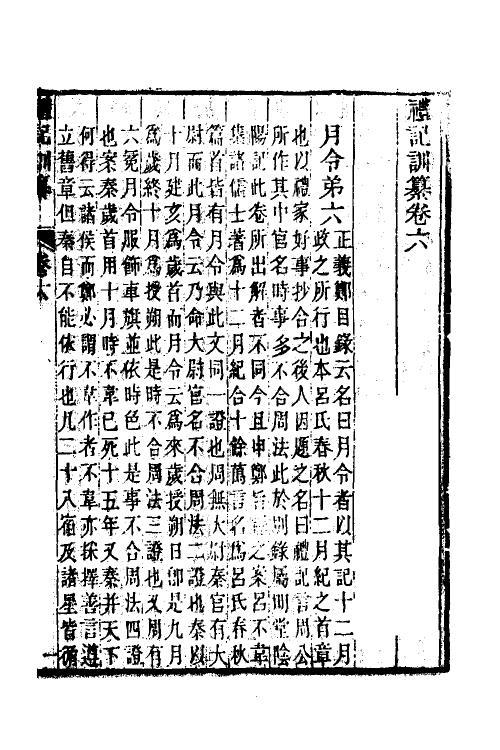 禮記訓纂卷六
月令弟六 正義鄭目錄云名曰月令者以其記十二月
政之所行也本呂氏春秋十二月紀之首章
也以禮家好事抄合之後人因題之名曰禮記言周公
所作其中官名時事多不合周法此於別錄屬明堂陰
陽記此卷所出解者不同今且申鄭旨釋之案呂不韋
集諸儒士著爲十二月紀合十餘萬言名爲呂氏春秋
篇首皆有月令與此文同一證也周無大尉秦官有大
尉而此月令云乃命大尉官名不合周法二證也秦以
十月建亥爲歲首而月令云爲來歲授朔日卽是九月
爲歲終十月爲授朔此是時不合周法三證也又周有
六冕月令服飾車旗並依時色此是事不合周法四證
也案秦歲首用十月時不韋已死十五年又秦并天下
何得云諸侯而鄭必謂不韋作者不韋亦採擇善言遵
立舊章但秦自不能依行也凡二十八宿及諸星皆循
禮記訓纂
卷六
一